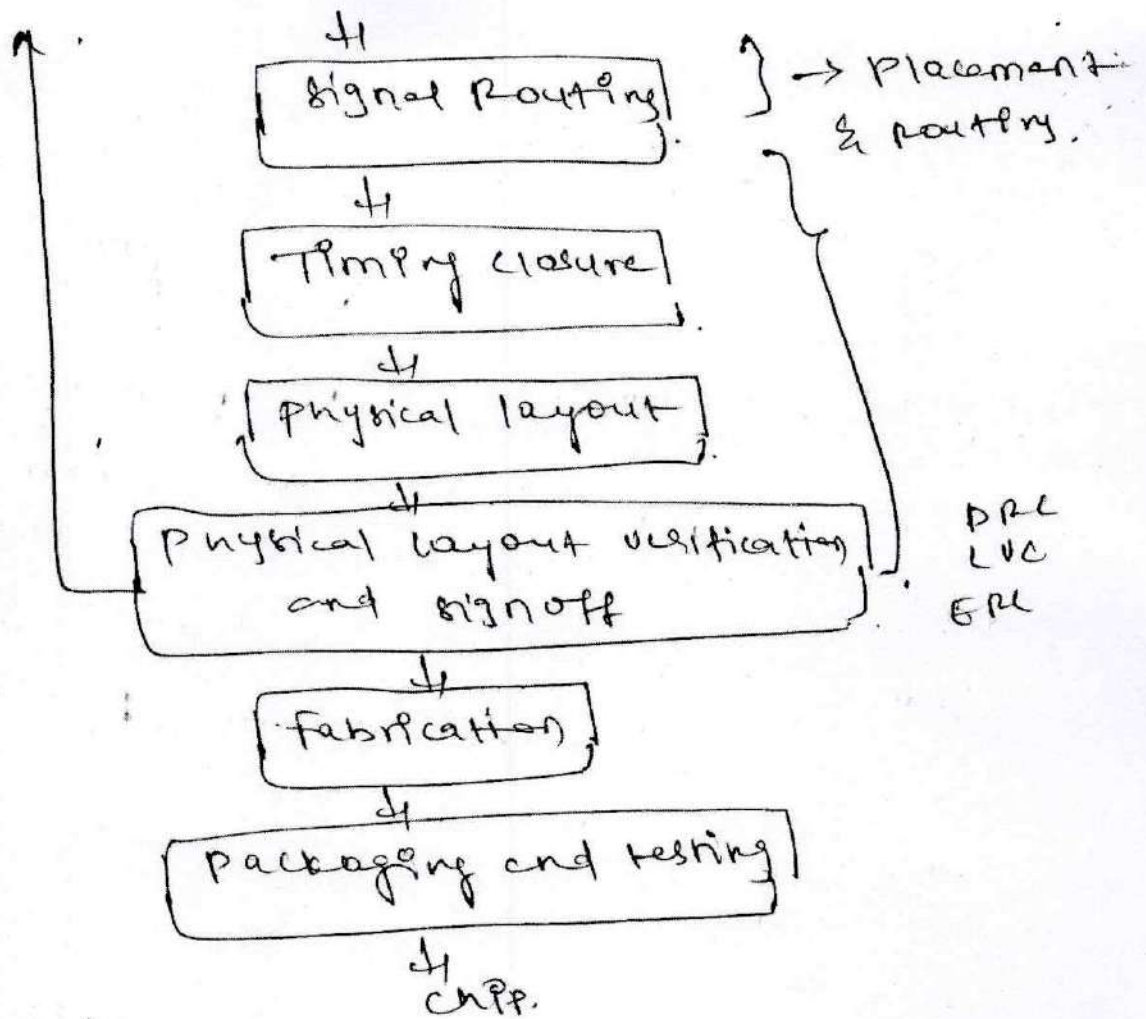 Signal Routing
→ Placement
& Routing.
Timing closure
physical layout
physical layout verification
and signoff
DRC
LVC
ERC
Fabrication
Packaging and testing
Chip.